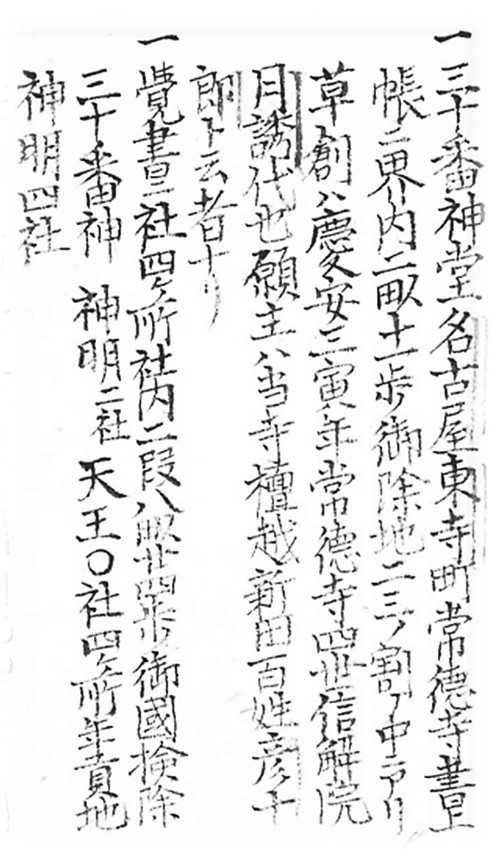 一三十番神堂名古屋東寺町常徳寺書上
帳ニ界内二畝十一歩御除地二三ノ割ノ中ニアリ
草創ハ慶安三寅年常徳寺四世信解院
日誘代也願主ハ当寺檀越新田百姓彦十
郎ト云者ナリ
一覚書ニ社四ケ所社内二段八畝廿四歩御國検除
三十番神　神明二社　天王〇社四ケ所年貢地
神明四社